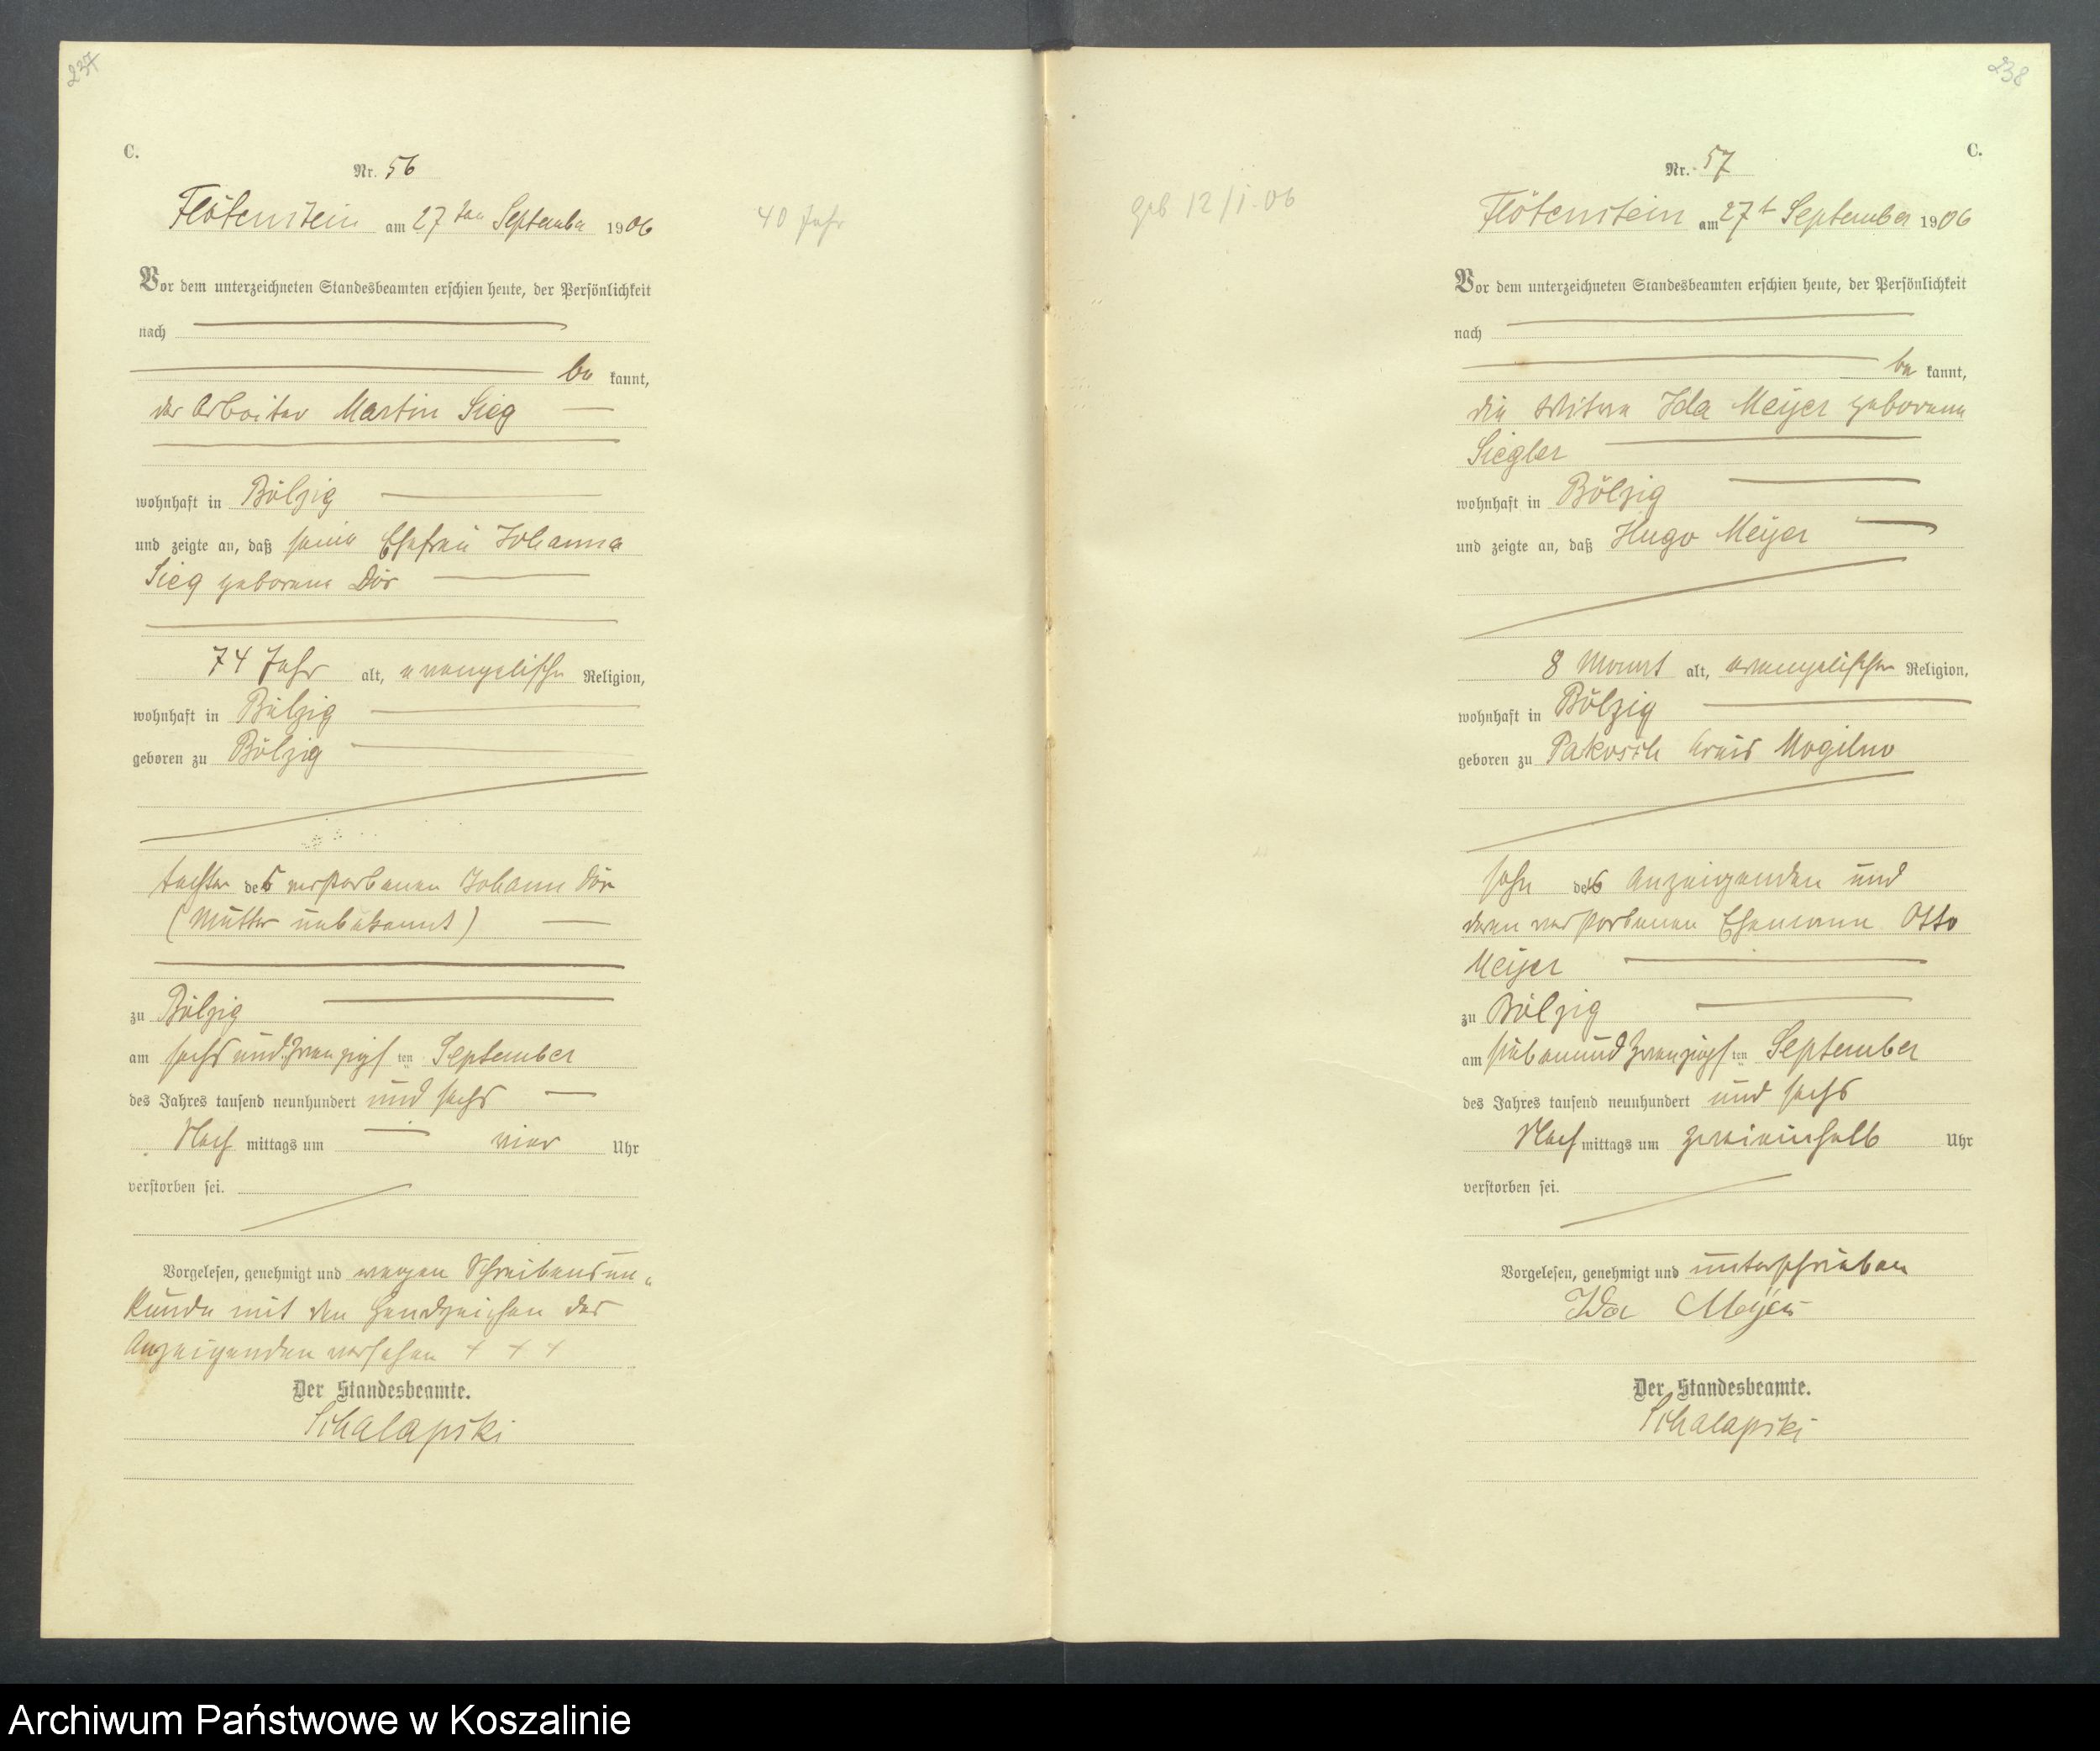 237
C.
Nr. 56
Flötenstein am 27ten September 1906
40 Jahr
Vor dem unterzeichneten Standesbeamten erschien heute, der Persönlichkeit
nach
be kannt,
der Arbeiter Martin Sieg
wohnhaft in Bölzig
und zeigte an, daß seine Ehefrau Johanna
Sieg geborene Dör
74 Jahr alt, evangelischer Religion,
wohnhaft in Bölzig
geboren zu Bölzig
tochter des verstorbenen Johann Dör
(Mutter unbekannt)
zu Bölzig
am sechsundzwanzigsten September
des Jahres tausend neunhundert und sechs
Nach mittags um vier Uhr
verstorben sei.
Vorgelesen, genehmigt und wegen Schreibensun-
kunde mit den Handzeichen des
Anzeigenden versehen + + +
Der Standesbeamte.
Schalapski
238
C.
Nr. 57
geb 12/1. 06
Flötenstein am 27t September 1906
Vor dem unterzeichneten Standesbeamten erschien heute, der Persönlichkeit
nach
be kannt,
die Witwe Ida Meyer geborene
Siegler
wohnhaft in Bölzig
und zeigte an, daß Hugo Meyer
8 Monat alt, evangelischer Religion,
wohnhaft in Bölzig
geboren zu Pakosch Kreis Mogilno
sohn des Anzeigenden und
deren verstorbenen Ehemann Otto
Meyer
zu Bölzig
am siebenundzwanzigsten September
des Jahres tausend neunhundert und sechs
Nach mittags um zweieinhalb Uhr
verstorben sei.
Vorgelesen, genehmigt und unterschrieben
Ida Meyer
Der Standesbeamte.
Schalapski
Archiwum Państwowe w Koszalinie